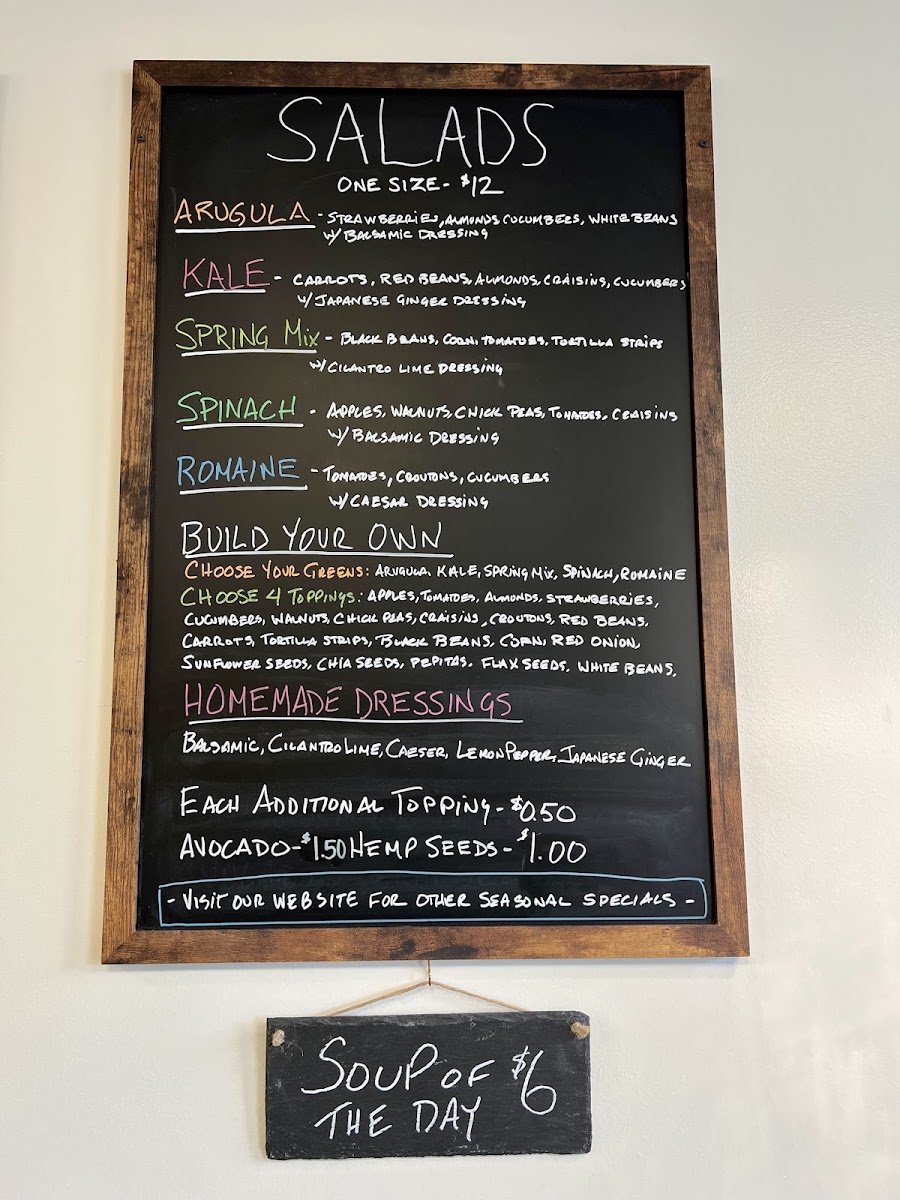 SALADS
ONE SIZE - $12
ARUGULA - STRAWBERRIES, ALMONDS, CUCUMBERS, WHITE BEANS
W/ BALSAMIC DRESSING
KALE - CARROTS, RED BEANS, ALMONDS, CRAISINS, CUCUMBERS
W/ JAPANESE GINGER DRESSING
SPRING MIX - BLACK BEANS, CORN, TOMATOES, TORTILLA STRIPS
W/ CILANTRO LIME DRESSING
SPINACH - APPLES, WALNUTS, CHICK PEAS, TOMATOES, CRAISINS
W/ BALSAMIC DRESSING
ROMAINE - TOMATOES, CROUTONS, CUCUMBERS
W/ CAESAR DRESSING
BUILD YOUR OWN
CHOOSE YOUR GREENS: ARUGULA, KALE, SPRING MIX, SPINACH, ROMAINE
CHOOSE 4 TOPPINGS: APPLES, TOMATOES, ALMONDS, STRAWBERRIES,
CUCUMBERS, WALNUTS, CHICK PEAS, CRAISINS, CROUTONS, RED BEANS,
CARROTS, TORTILLA STRIPS, BLACK BEANS, CORN, RED ONION,
SUNFLOWER SEEDS, CHIA SEEDS, PEPITAS, FLAX SEEDS, WHITE BEANS,
HOMEMADE DRESSINGS
BALSAMIC, CILANTRO LIME, CAESER, LEMON PEPPER, JAPANESE GINGER
EACH ADDITIONAL TOPPING - $0.50
AVOCADO - $1.50 HEMP SEEDS - $1.00
- VISIT OUR WEBSITE FOR OTHER SEASONAL SPECIALS -
SOUP OF $6
THE DAY